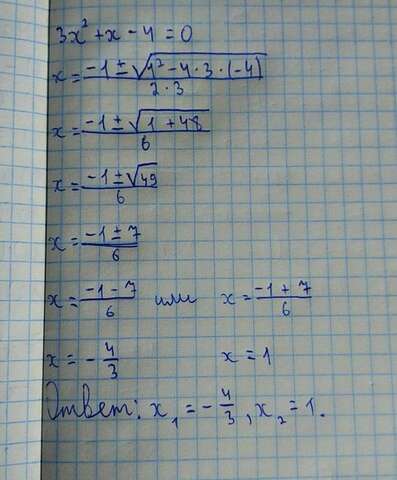 3x² + x - 4 = 0
x = (-1 ± √(1² - 4 · 3 · (-4))) / (2 · 3)
x = (-1 ± √(1 + 48)) / 6
x = (-1 ± √49) / 6
x = (-1 ± 7) / 6
x = (-1 - 7) / 6 или x = (-1 + 7) / 6
x = - 4/3 x = 1
Ответ: x₁ = - 4/3, x₂ = 1.